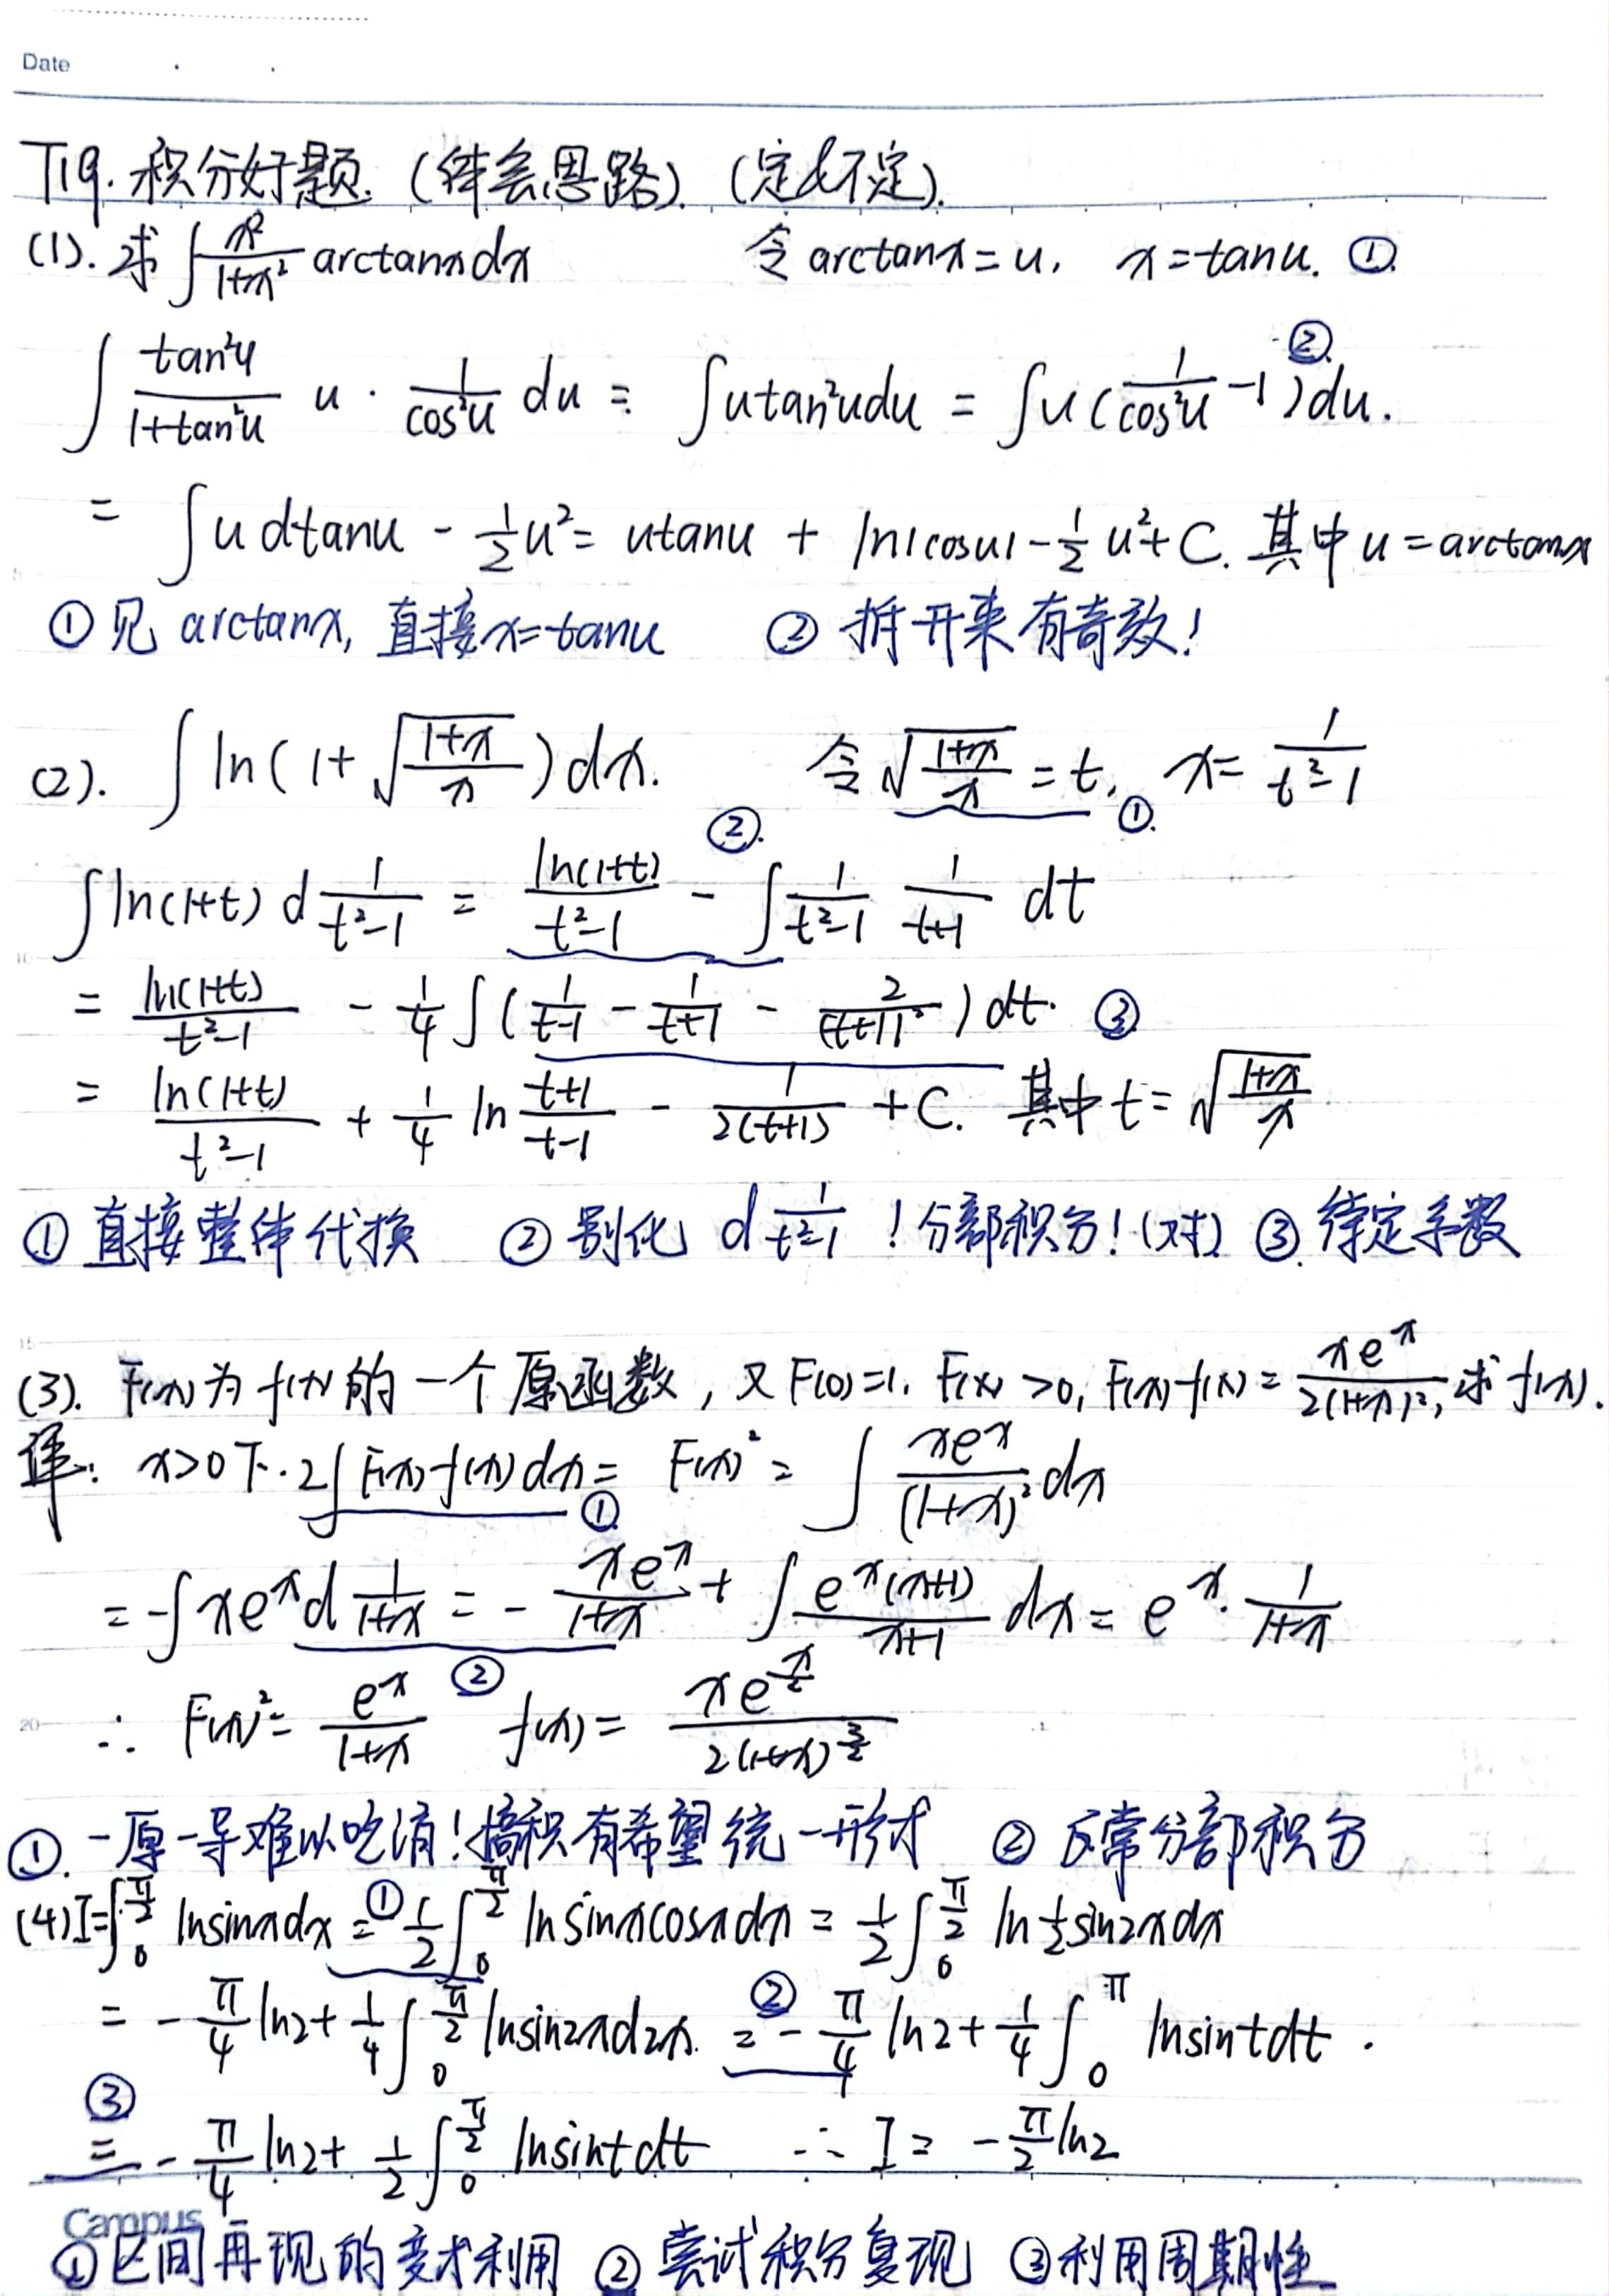 Date
T19. 积分好题. (体会思路). (定&不定).
(1). 求 ∫ x²/(1+x²) arctanx dx 令 arctanx = u, x = tanu. ①
∫ tan²u/(1+tan²u) u · 1/cos²u du = ∫utan²udu = ∫u(1/cos²u - 1)du. ②
= ∫u dtanu - 1/2 u² = utanu + ln|cosu| - 1/2 u² + C. 其中 u = arctanx
① 见 arctanx, 直接 x=tanu ② 拆开来有奇效!
(2). ∫ ln(1+√((1+x)/x)) dx. 令 √((1+x)/x) = t, ①. x = 1/(t²-1)
∫ln(1+t) d 1/(t²-1) = ln(1+t)/(t²-1) - ∫ 1/(t²-1) 1/(t+1) dt ②.
= ln(1+t)/(t²-1) - 1/4 ∫(1/(t-1) - 1/(t+1) - 2/(t+1)²) dt. ③
= ln(1+t)/(t²-1) + 1/4 ln (t+1)/(t-1) - 1/(2(t+1)) + C. 其中 t = √((1+x)/x)
① 直接整体代换 ② 别化 d 1/(t²-1) ! 分部积分! (对) ③. 待定系数
(3). F(x)为f(x)的一个原函数, 又F(0)=1, F(x)>0, F(x)f(x) = xeˣ/(2(1+x)²), 求f(x).
译: x>0下. 2∫F(x)f(x)dx = F(x)² = ∫ xeˣ/(1+x)² dx ①
= -∫xeˣ d 1/(1+x) = - xeˣ/(1+x) + ∫ eˣ(x+1)/(x+1) dx = eˣ · 1/(1+x) ②
∴ F(x)² = eˣ/(1+x) f(x) = xe^(x/2)/(2(1+x)^(3/2))
①. 一原一导难以吃消! 搞积有希望统一形式 ② 反常分部积分
(4) I=∫₀^(π/2) lnsinxdx =① 1/2∫₀^(π/2) lnsinxcosxdx = 1/2∫₀^(π/2) ln 1/2 sin2xdx
= -π/4 ln2 + 1/4∫₀^(π/2) lnsin2xd2x. =② -π/4 ln2 + 1/4∫₀^π lnsintdt.
=③ -π/4 ln2 + 1/2∫₀^(π/2) lnsintdt ∴ I = -π/2 ln2
Campus
① 区间再现的变式利用 ② 尝试积分复现 ③ 利用周期性